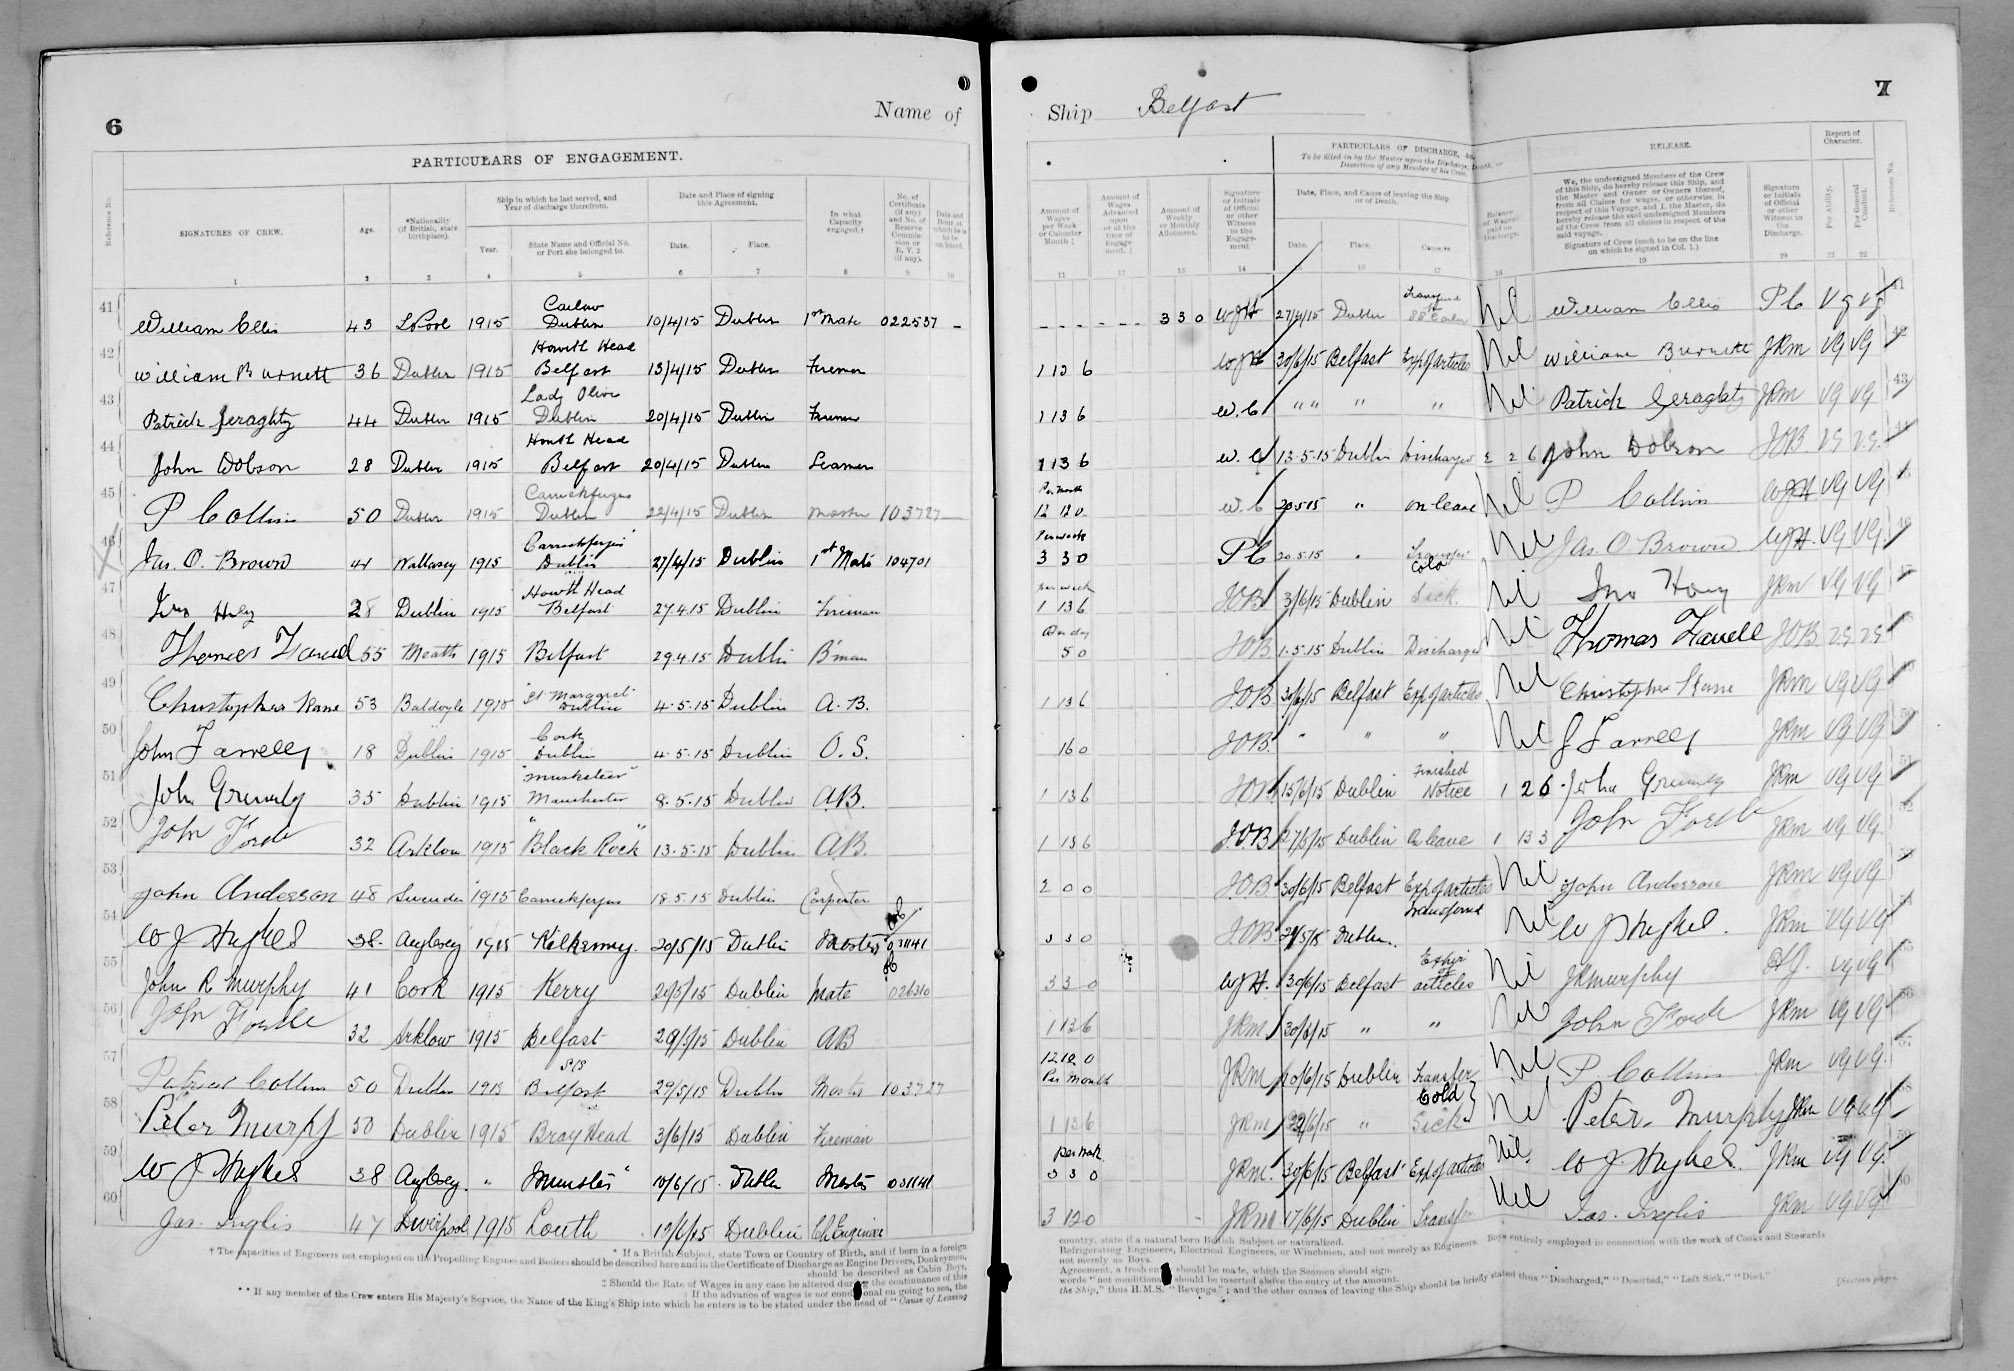 6
Name of
PARTICULARS OF ENGAGEMENT.
Reference No.
SIGNATURES OF CREW.
Age.
*Nationality (if British, state birthplace).
Ship in which he last served, and Year of discharge therefrom.
Year.
State Name and Official No. or Port she belonged to.
Date and Place of signing this Agreement.
Date.
Place.
In what Capacity engaged.†
No. of Certificate (if any) and No. of Reserve Commission or R. V. 2 (if any).
1 3 4 5 6 7 8 9 10
Carlow
41 William Ellis 43 L'Pool 1915 Dublin 10/4/15 Dublin 1st Mate 022537 –
Howth Head
42 William Burnett 36 Dublin 1915 Belfast 13/4/15 Dublin Fireman
Lady Olive
43 Patrick Geraghty 44 Dublin 1915 Dublin 20/4/15 Dublin Fireman
Howth Head
44 John Dobson 28 Dublin 1915 Belfast 20/4/15 Dublin Seaman
Carrickfergus
45 P Collins 50 Dublin 1915 Dublin 22/4/15 Dublin Master 103727
Carrickfergus
46 Jas. O. Brown 41 Wallasey 1915 Dublin 27/4/15 Dublin 1st Mate 104701
Howth Head
47 28 Dublin 1915 Belfast 27.4.15 Dublin Fireman
48 Thomas 55 Meath 1915 Belfast 29.4.15 Dublin B'man
St Margaret
49 Christopher Kane 53 Baldoyle 1915 Dublin 4.5.15 Dublin A.B.
Cork
50 John Farrelly 18 Dublin 1915 Dublin 4.5.15 Dublin O.S.
"Musketeer"
51 John Grumly 35 Dublin 1915 Manchester 8.5.15 Dublin A.B.
52 John Forde 32 Arklow 1915 "Black Rock" 13.5.15 Dublin A.B.
53 John Anderson 48 Sweden 1915 Carrickfergus 18.5.15 Dublin Carpenter
54 W J Hughes 38 Anglesey 1915 Kilkenny 20/5/15 Dublin Master 031141
55 John R Murphy 41 Cork 1915 Kerry 20/5/15 Dublin Mate 026310
56 John Forde 32 Arklow 1915 Belfast 29/5/15 Dublin AB
S/S
57 Patrick Collins 50 Dublin 1915 Belfast 29/5/15 Dublin Master 103727
58 Peter Murphy 50 Dublin 1915 Bray Head 3/6/15 Dublin Fireman
59 W J Hughes 38 Anglesey " Munster 10/6/15 Dublin Master 031141
60 Jas. Inglis 47 Liverpool 1915 Louth 12/6/15 Dublin Ch Engineer
† The capacities of Engineers not employed on the Propelling Engines and Boilers should be described here and in the Certificate of Discharge as Engine Drivers, Donkeymen,
* If a British Subject, state Town or Country of Birth, and if born in a foreign
should be described as Cabin Boys,
‡ Should the Rate of Wages in any case be altered during the continuance of this
|| If the advance of wages is not conditional on going to sea, the
** If any member of the Crew enters His Majesty's Service, the Name of the King's Ship into which he enters is to be stated under the head of "Cause of Leaving
7
Ship Belfast
PARTICULARS OF DISCHARGE,
To be filled in by the Master upon the Discharge, Death, or Desertion of any Member of his Crew.
RELEASE.
Report of Character.
Amount of Wages per Week or Calendar Month ‡
Amount of Wages Advanced upon or at the time of Engagement.
Amount of Weekly or Monthly Allotment.
Signature or Initials of Official or other Witness to the Engagement
Date, Place, and Cause of leaving the Ship or of Death.
Date.
Place.
Cause.**
Balance of Wages paid on Discharge.
We, the undersigned Members of the Crew of this Ship, do hereby release this Ship, and the Master and Owner or Owners thereof, from all Claims for wages, or otherwise in respect of this Voyage, and I, the Master, do hereby release the said undersigned Members of the Crew from all claims in respect of the said voyage.
Signature of Crew (each to be on the line on which he signed in Col. 1.)
Signature or Initials of Official or other Witness to the Discharge.
For Ability.
For General Conduct.
Reference No.
11 12 13 14 16 17 18 19 20 21 22
3 3 0 WJH 27/4/15 Dublin Nil William Ellis PC Vg Vg 41
1 13 6 WJH 30/6/15 Belfast Exp of articles Nil William Burnett JRM VG VG 42
1 13 6 W.C " " " " Nil Patrick Geraghty JRM VG VG 43
1 13 6 W.C 13.5.15 Dublin Discharged 2 2 6 John Dobson JOB VG VG 44
Per Month
12 12 0 W.C 20.5.15 " On leave Nil P Collins WJH VG VG
Per week
3 3 0 PC 20.5.15 " Transfer Nil Jas. O. Brown WJH VG VG
per week
1 13 6 JOB 3/6/15 Dublin Sick. Nil JRM VG VG
Per day
5 0 JOB 1.5.15 Dublin Discharged Nil Thomas JOB VG VG
1 13 6 JOB 30/6/15 Belfast Exp of articles Nil Christopher Kane JRM VG VG
16 0 JOB " " " Nil J Farrelly JRM VG VG
1 13 6 JOB 15/6/15 Dublin Finished Notice 1 2 6 John Grumly JRM VG VG
1 13 6 J.O.B 27/5/15 Dublin On leave 1 13 3 John Forde JRM VG VG
2 0 0 JOB 30/6/15 Belfast Exp of articles Nil John Anderson JRM VG VG
3 3 0 JOB 29/5/15 Dublin Transferred Nil W J Hughes. JRM VG VG
3 3 0 WJH. 30/6/15 Belfast articles Nil JRMurphy VG VG
1 13 6 JRM 30/6/15 " " Nil John Forde JRM VG VG
12 12 0
Per Month JRM 10/6/15 Dublin Transfer Nil P. Collins JRM VG VG
1 13 6 JRM 22/6/15 " Sick Nil Peter Murphy JRM VG VG
Per week
3 3 0 JRM. 30/6/15 Belfast Exp of articles Nil. W J Hughes. JRM VG VG
3 12 0 JRM 17/6/15 Dublin Transfer Nil Jas. Inglis JRM VG VG
country, state if a natural born British Subject or naturalized.
Refrigerating Engineers, Electrical Engineers, or Winchmen, and not merely as Engineers. Boys entirely employed in connection with the work of Cooks and Stewards
not merely as Boys.
Agreement, a fresh en should be made, which the Seamen should sign.
words "not conditional" should be inserted above the entry of the amount.
the Ship," thus H.M.S. "Revenge"; and the other causes of leaving the Ship should be briefly stated thus "Discharged," "Deserted," "Left Sick," "Died."
[Sixteen pages.